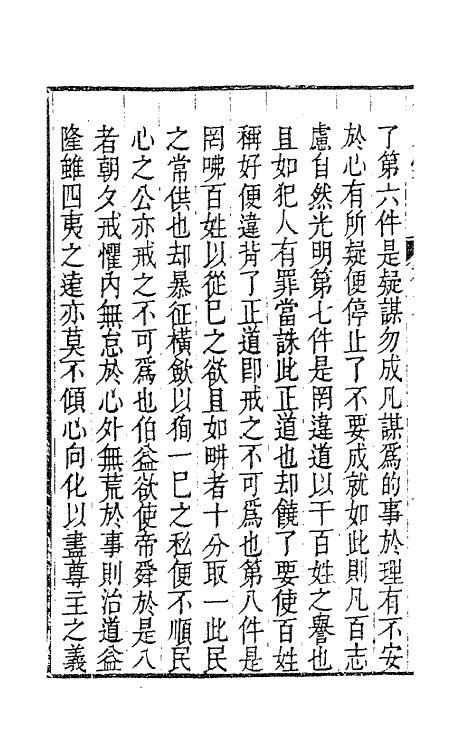 了第六件是疑謀勿成凡謀爲的事於理有不安
於心有所疑便停止了不要成就如此則凡百志
慮自然光明第七件是罔違道以干百姓之譽也
且如犯人有罪當誅此正道也却饒了要使百姓
稱好便違背了正道即戒之不可爲也第八件是
罔咈百姓以從巳之欲且如畊者十分取一此民
之常供也却暴征橫斂以狥一巳之私便不順民
心之公亦戒之不可爲也伯益欲使帝舜於是八
者朝夕戒懼内無怠於心外無荒於事則治道益
隆雖四夷之遠亦莫不傾心向化以盡尊王之義